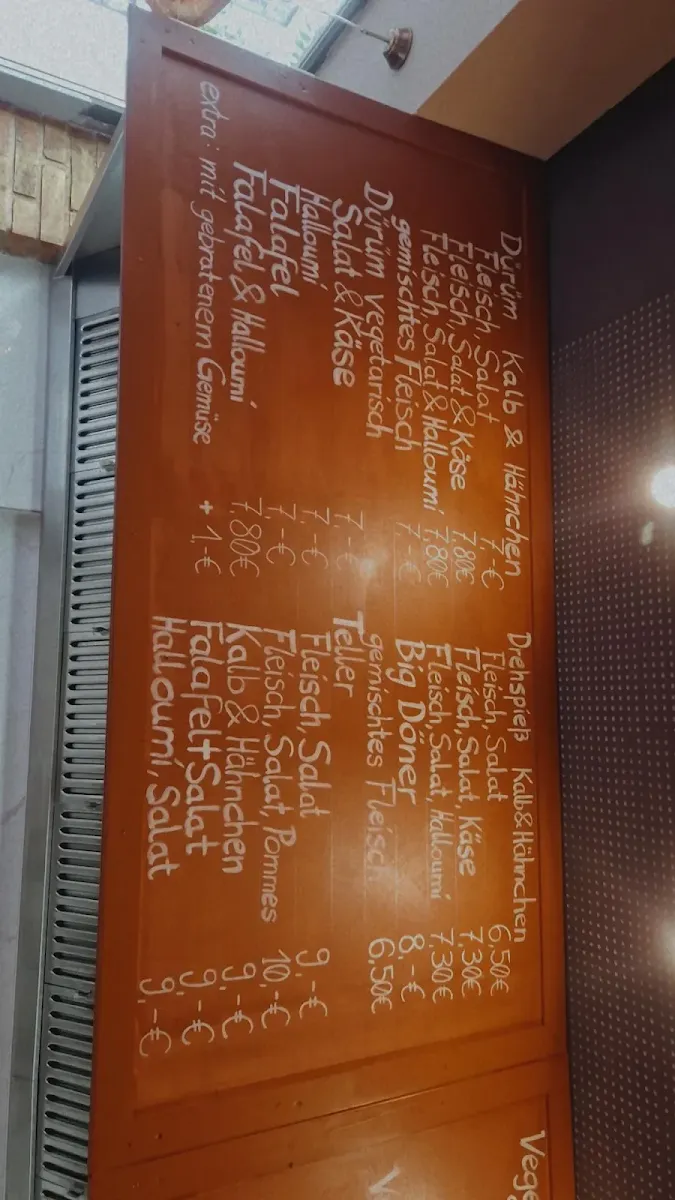 Dürüm Kalb & Hähnchen
Fleisch, Salat 7,-€
Fleisch, Salat & Käse 7,80€
Fleisch, Salat & Halloumi 7,80€
gemischtes Fleisch 7,-€
Dürüm vegetarisch
Salat & Käse 7,-€
Halloumi 7,-€
Falafel 7,-€
Falafel & Halloumi 7,80€
extra: mit gebratenem Gemüse + 1,-€
Drehspieß Kalb&Hähnchen
Fleisch, Salat 6,50€
Fleisch, Salat, Käse 7,30€
Fleisch, Salat, Halloumi 7,30€
Big Döner 8,-€
gemischtes Fleisch 6,50€
Teller
Fleisch, Salat 9,-€
Fleisch, Salat, Pommes 10,-€
Kalb & Hähnchen 9,-€
Falafel+Salat 9,-€
Halloumi, Salat 9,-€
Vege
V